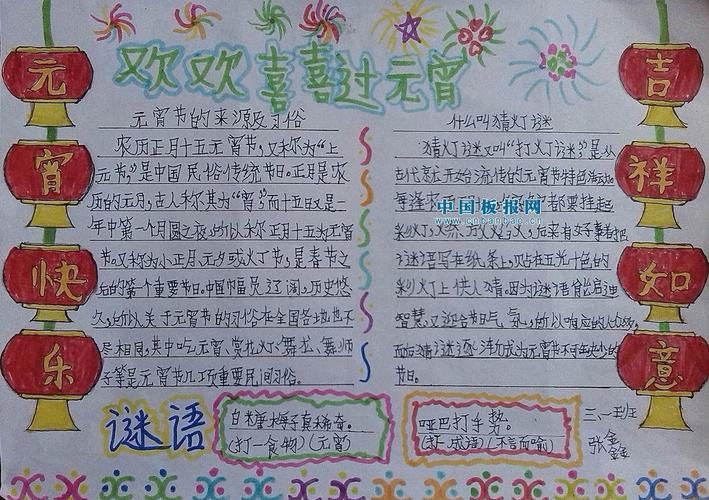 欢欢喜喜过元宵
元
宵
快
乐
元宵节的来源及习俗
农历正月十五元宵节,又称为“上
元节”,是中国民俗传统节日。正月是农
历的元月,古人称其为“宵”,而十五日又是一
年中第一个月圆之夜,所以称正月十五为元宵
节。又称为小正月、元夕或火丁节,是春节之
后的第一个重要节日。中国幅员辽阔,历史悠
久,所以关于元宵节的习俗在全国各地也不
尽相同,其中吃元宵、赏花灯、舞龙、舞师
子等是元宵节几项重要民间习俗。
什么叫猜灯谜
猜灯谜又叫“打灯谜”,是从
古代就开始流传的元宵节特色活动。
每逢农
都要挂起
彩灯,燃放火焰火,后来有好事者把
谜语写在纸条上,贝占在五光十色的
彩灯上供人猜。因为谜语能启迪
智慧,又迎合节日气氛,所以响应的人众多,
而后猜谜逐渐成为元宵节不可缺少的
节日。
中国板报网
www.cnbanbao.cn
吉
祥
如
意
谜语
白糖梅子真稀奇。
(打一食物)(元宵)
哑巴打手势。
(打一成语)(不言而喻)
三、一班
张鑫鑫